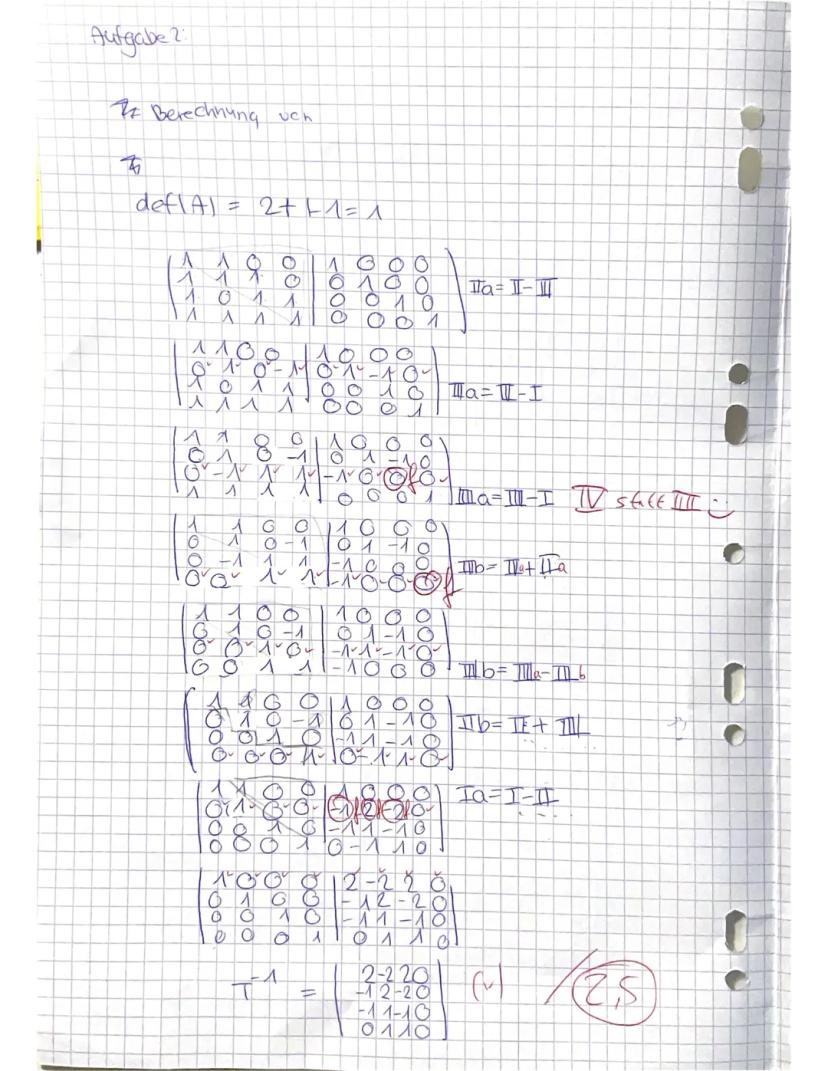 Aufgabe 2:
Berechnung von
def(A) = 2+1-1=1
1 1 0 0 | 1 0 0 0
1 1 1 0 | 0 1 0 0 IIa = II - III
1 0 1 1 | 0 0 1 0
1 1 1 1 | 0 0 0 1
1 1 0 0 | 1 0 0 0
0 1 0 -1 | 0 1 -1 0
1 0 1 1 | 0 0 1 0 IIIa = III - I
1 1 1 1 | 0 0 0 1
1 1 0 0 | 1 0 0 0
0 1 0 -1 | 0 1 -1 0
0 -1 1 1 | -1 0 0 0 f
1 1 1 1 | 0 0 0 1 IIIa = III - I IV statt III :)
1 1 0 0 | 1 0 0 0
0 1 0 -1 | 0 1 -1 0
0 -1 1 1 | -1 0 0 0 IIIb = IIIa + IIa
0 0 1 1 | -1 0 0 0 f
1 1 0 0 | 1 0 0 0
0 1 0 -1 | 0 1 -1 0
0 0 1 0 | -1 1 -1 0
0 0 1 1 | -1 0 0 0 IIIb = IIIa - IIIb
1 1 0 0 | 1 0 0 0
0 1 0 -1 | 0 1 -1 0 IIb = II + III
0 0 1 0 | -1 1 -1 0
0 0 0 1 | 0 -1 1 0
1 1 0 0 | 1 0 0 0 Ia = I - II
0 1 0 0 | -1 2 -2 0
0 0 1 0 | -1 1 -1 0
0 0 0 1 | 0 -1 1 0
1 0 0 0 | 2 -2 2 0
0 1 0 0 | -1 2 -2 0
0 0 1 0 | -1 1 -1 0
0 0 0 1 | 0 1 1 0
2 -2 2 0
T^-1 = -1 2 -2 0 (v) / 2,5
-1 1 -1 0
0 1 1 0